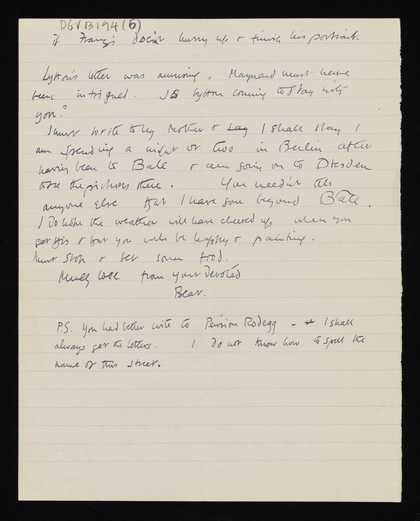 DGV B194 (6)
if Francis doesn't hurry up & finish his portrait.
Lytton's letter was amusing. Maynard must have
been intrigued. Is Lytton coming to stay with
you?
I must write to my Mother & say I shall stay I
am spending a night or two in Berlin after
having been to Bâle & am going on to Dresden
to see the pictures there. You needn't tell
anyone else that I have gone beyond Bâle.
I do hope the weather will have cleared up when you
get this & that you will be happy & painting.
Must stop & get some food.
Much love from your devoted
Bear.
PS. You had better write to Pension Rodegg - I shall
always get the letters. I do not know how to spell the
name of this street.